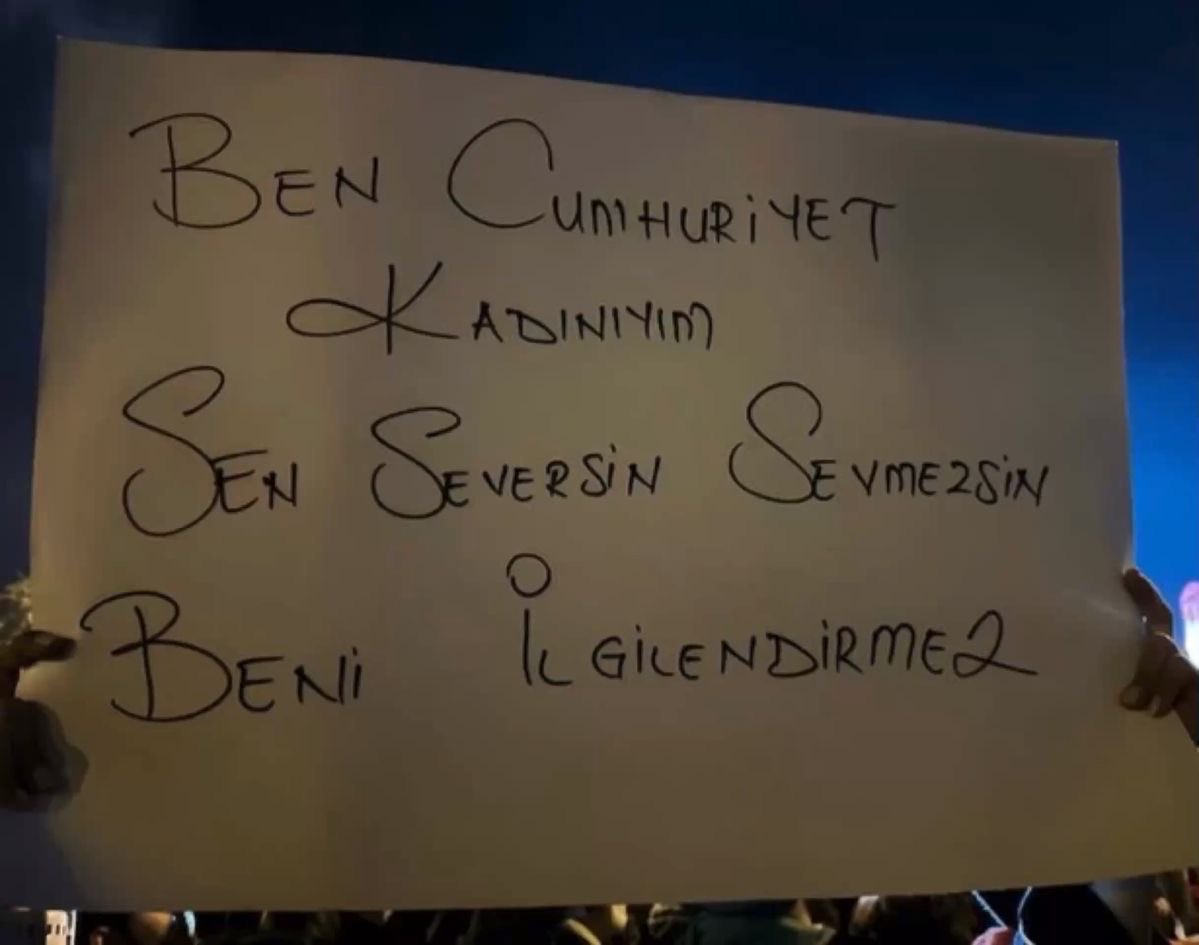 BEN CUMHURİYET
KADINIYIM
SEN SEVERSİN SEVMEZSİN
BENİ İLGİLENDİRMEZ